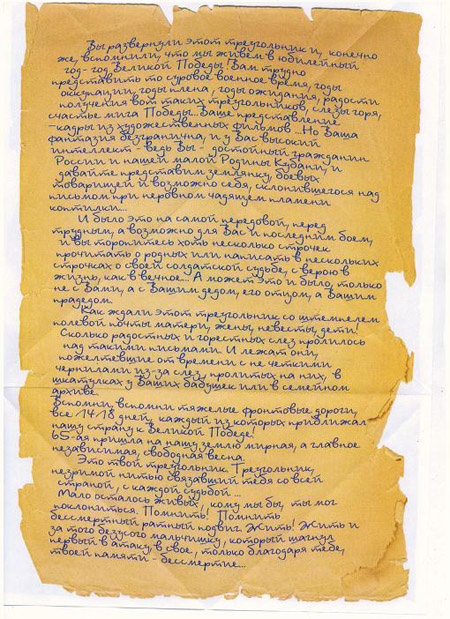 Вы развернули этот треугольник и, конечно
же, вспомнили, что мы живем в юбилейный
год- год Великой Победы! Вам трудно
представить то суровое военное время, годы
оккупации, годы плена, годы ожидания, радости
получения вот таких треугольников, слезы горя,
счастье мига Победы...Ваше представление
-кадры из художественных фильмов ...Но Ваша
фантазия безгранична, и у Вас высокий
интеллект - ведь Вы - достойный гражданин
России и нашей малой Родины Кубани, и
давайте представим землянку, боевых
товарищей и возможно себя, склонившегося над
письмом при неровном чадящем пламени
коптилки...
И было это на самой передовой, перед
трудным, а возможно для Вас и последним боем,
и вы торопитесь хоть несколько строчек
прочитать о родных или написать в нескольких
строчках о своей солдатской судьбе, с верою в
жизнь, как в вечное... А может это и было, только
не с Вами, а с Вашим дедом, его отцом, а Вашим
прадедом.
Как ждали этот треугольник со штемпелем
полевой почты матери, жены, невесты, дети!
Сколько радостных и горестных слез пролилось
над такими письмами. И лежат они,
пожелтевшие от времени с не четкими
чернилами из-за слез, пролитых на них, в
шкатулках у Ваших бабушек или в семейном
архиве.
Вспомни, вспомни тяжелые фронтовые дороги,
все 1418 дней, каждый из которых приближал
нашу страну к Великой Победе!
65-ая пришла на нашу землю мирная, а главное
независимая, свободная весна.
Это твой треугольник. Треугольник,
незримой нитью связавший тебя со всей
страной, с каждой судьбой ...
Мало осталось живых, кому мы бы, ты мог
поклониться. Помнить! Помнить
бессмертный ратный подвиг. Жить! Жить и
за того безусого мальчишку, который шагнул
первый в атаку, в свое, только благодаря тебе,
твоей памяти - бессмертие...